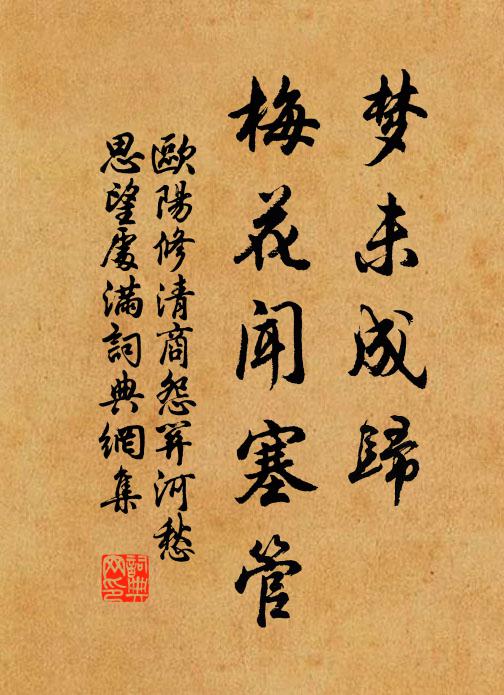 梦未成歸
梅花聞塞管
歐陽修清商怨関河愁
思望處满詞典網集
詞典
网印